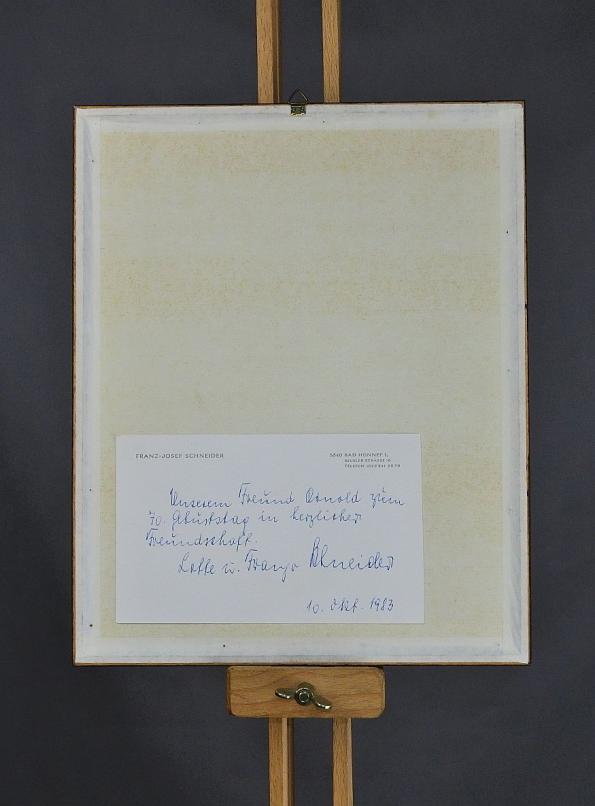 FRANZ-JOSEF SCHNEIDER
5340 BAD HONNEF 1,
TELEFON
Unserem Freund Arnold zum
70. Geburtstag in herzlicher
Freundschaft.
Lotte u. Franzjo Schneider
10. Okt. 1983